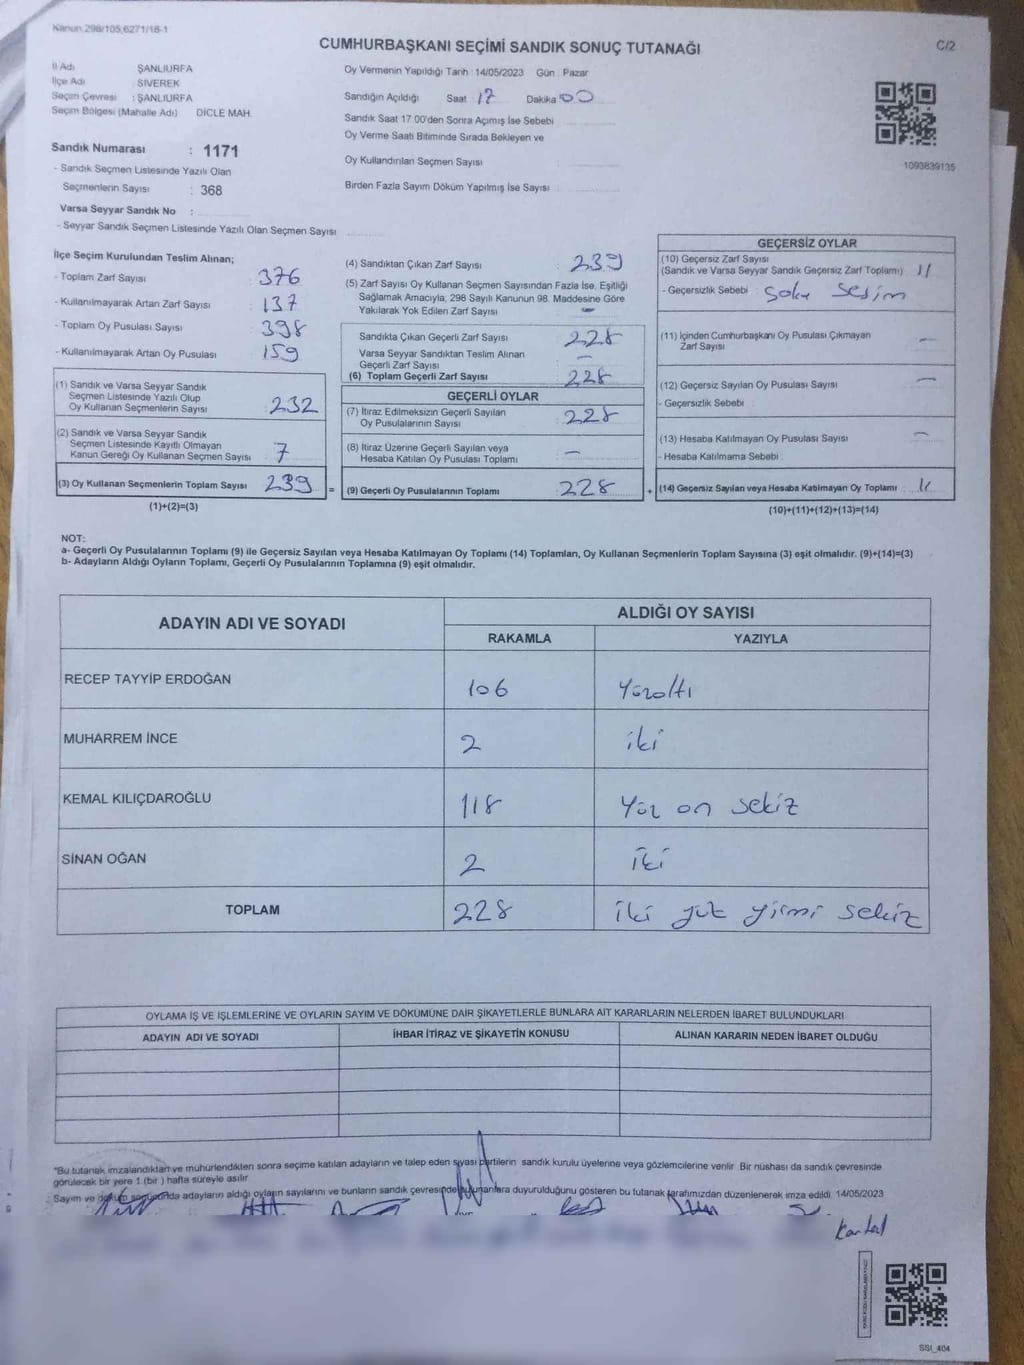 Kanun 298/105,6271/18-1
C/2
CUMHURBAŞKANI SEÇİMİ SANDIK SONUÇ TUTANAĞI
İl Adı : ŞANLIURFA
İlçe Adı : SİVEREK
Seçim Çevresi : ŞANLIURFA
Seçim Bölgesi (Mahalle Adı) DİCLE MAH.
Sandık Numarası : 1171
- Sandık Seçmen Listesinde Yazılı Olan
Seçmenlerin Sayısı : 368
Varsa Seyyar Sandık No :
- Seyyar Sandık Seçmen Listesinde Yazılı Olan Seçmen Sayısı
Oy Vermenin Yapıldığı Tarih : 14/05/2023 Gün : Pazar
Sandığın Açıldığı Saat 17 Dakika 00
Sandık Saat 17.00'den Sonra Açımış İse Sebebi
Oy Verme Saati Bitiminde Sırada Bekleyen ve
Oy Kullandırılan Seçmen Sayısı
Birden Fazla Sayım Döküm Yapılmış İse Sayısı
1093839135
İlçe Seçim Kurulundan Teslim Alınan;
- Toplam Zarf Sayısı 376
- Kullanılmayarak Artan Zarf Sayısı : 137
- Toplam Oy Pusulası Sayısı 398
- Kullanılmayarak Artan Oy Pusulası 159
(1) Sandık ve Varsa Seyyar Sandık
Seçmen Listesinde Yazılı Olup
Oy Kullanan Seçmenlerin Sayısı 232
(2) Sandık ve Varsa Seyyar Sandık
Seçmen Listesinde Kayıtlı Olmayan
Kanun Gereği Oy Kullanan Seçmen Sayısı 7
(3) Oy Kullanan Seçmenlerin Toplam Sayısı 239 =
(1)+(2)=(3)
(4) Sandıktan Çıkan Zarf Sayısı 239
(5) Zarf Sayısı Oy Kullanan Seçmen Sayısından Fazla İse, Eşitliği
Sağlamak Amacıyla, 298 Sayılı Kanunun 98. Maddesine Göre
Yakılarak Yok Edilen Zarf Sayısı -
Sandıkta Çıkan Geçerli Zarf Sayısı 228
Varsa Seyyar Sandıktan Teslim Alınan
Geçerli Zarf Sayısı -
(6) Toplam Geçerli Zarf Sayısı 228
GEÇERLİ OYLAR
(7) İtiraz Edilmeksizin Geçerli Sayılan
Oy Pusulalarının Sayısı 228
(8) İtiraz Üzerine Geçerli Sayılan veya
Hesaba Katılan Oy Pusulası Toplamı -
(9) Geçerli Oy Pusulalarının Toplamı 228 +
GEÇERSİZ OYLAR
(10) Geçersiz Zarf Sayısı
(Sandık ve Varsa Seyyar Sandık Geçersiz Zarf Toplamı) 11
- Geçersizlik Sebebi
(11) İçinden Cumhurbaşkanı Oy Pusulası Çıkmayan
Zarf Sayısı -
(12) Geçersiz Sayılan Oy Pusulası Sayısı -
- Geçersizlik Sebebi :
(13) Hesaba Katılmayan Oy Pusulası Sayısı -
- Hesaba Katılmama Sebebi :
(14) Geçersiz Sayılan veya Hesaba Katılmayan Oy Toplamı 11
(10)+(11)+(12)+(13)=(14)
NOT:
a- Geçerli Oy Pusulalarının Toplamı (9) ile Geçersiz Sayılan veya Hesaba Katılmayan Oy Toplamı (14) Toplamları, Oy Kullanan Seçmenlerin Toplam Sayısına (3) eşit olmalıdır. (9)+(14)=(3)
b- Adayların Aldığı Oyların Toplamı, Geçerli Oy Pusulalarının Toplamına (9) eşit olmalıdır.
ADAYIN ADI VE SOYADI ALDIĞI OY SAYISI
RAKAMLA YAZIYLA
RECEP TAYYİP ERDOĞAN 106 Yüzaltı
MUHARREM İNCE 2 iki
KEMAL KILIÇDAROĞLU 118 Yüz on sekiz
SİNAN OĞAN 2 iki
TOPLAM 228 iki yüz yirmi sekiz
OYLAMA İŞ VE İŞLEMLERİNE VE OYLARIN SAYIM VE DÖKÜMÜNE DAİR ŞİKAYETLERLE BUNLARA AİT KARARLARIN NELERDEN İBARET BULUNDUKLARI
ADAYIN ADI VE SOYADI İHBAR İTİRAZ VE ŞİKAYETİN KONUSU ALINAN KARARIN NEDEN İBARET OLDUĞU
"Bu tutanak imzalandıktan ve mühürlendikten sonra seçime katılan adayların ve talep eden siyasi partilerin sandık kurulu üyelerine veya gözlemcilerine verilir. Bir nüshası da sandık çevresinde
görülecek bir yere 1 (bir) hafta süreyle asılır.
Sayım ve döküm sonucunda adayların aldığı oyların sayılarını ve bunların sandık çevresinde bulunanlara duyurulduğunu gösteren bu tutanak tarafımızdan düzenlenerek imza edildi. 14/05/2023
SSI_404